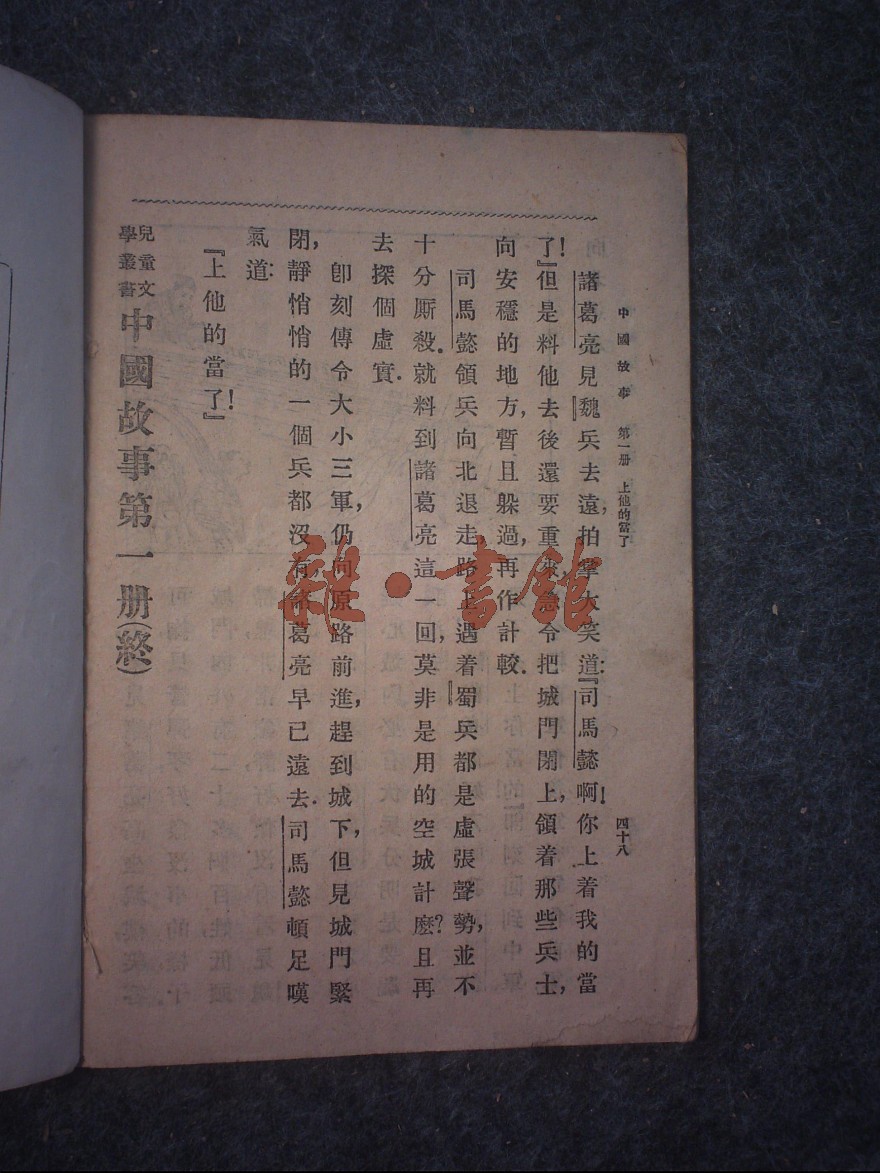 中國故事 第一册 上他的當了 四十八
諸葛亮見魏兵去遠,拍掌大笑道:『司馬懿啊!你上着我的當
了!』但是料他去後還要重來,急令把城門閉上,領着那些兵士,
向安穩的地方,暫且躲過,再作計較.
司馬懿領兵向北退走,路上遇着蜀兵都是虛張聲勢,並不
十分厮殺.就料到諸葛亮這一回,莫非是用的空城計麽?且再
去探個虛實.
卽刻傳令大小三軍,仍向原路前進,趕到城下,但見城門緊
閉,靜悄悄的一個兵都沒有,諸葛亮早已遠去.司馬懿頓足嘆
氣道:
『上他的當了!』
兒童文學叢書 中國故事第一册(終)
雜·書館